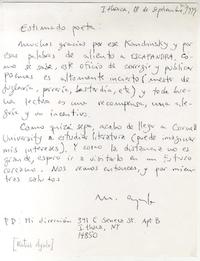 Ithaca, 18 de septiembre, 1999
Estimado poeta:
Muchas gracias por ese Kandinsky y por
esas palabras de aliento a ESCAFANDRA. Co-
mo se sabe, este oficio de corregir y publicar
poemas es altamente incierto (mezcla de
juglaría, porfía, bastardía, etc) y toda bue-
na lectura es una recompensa, una ale-
gría y un incentivo.
Como quizá sepa, acabo de llegar a Cornell
University a estudiar literatura (puede imaginar
mis intereses). Y como la distancia no es
grande, espero ir a visitarlo en un futuro
cercano. Nos vemos entonces, y por mien-
tras saludos
M. Ayala
PD: Mi dirección 311 C Seneca St. Apt B
Ithaca, NY
14850
[Matías Ayala]